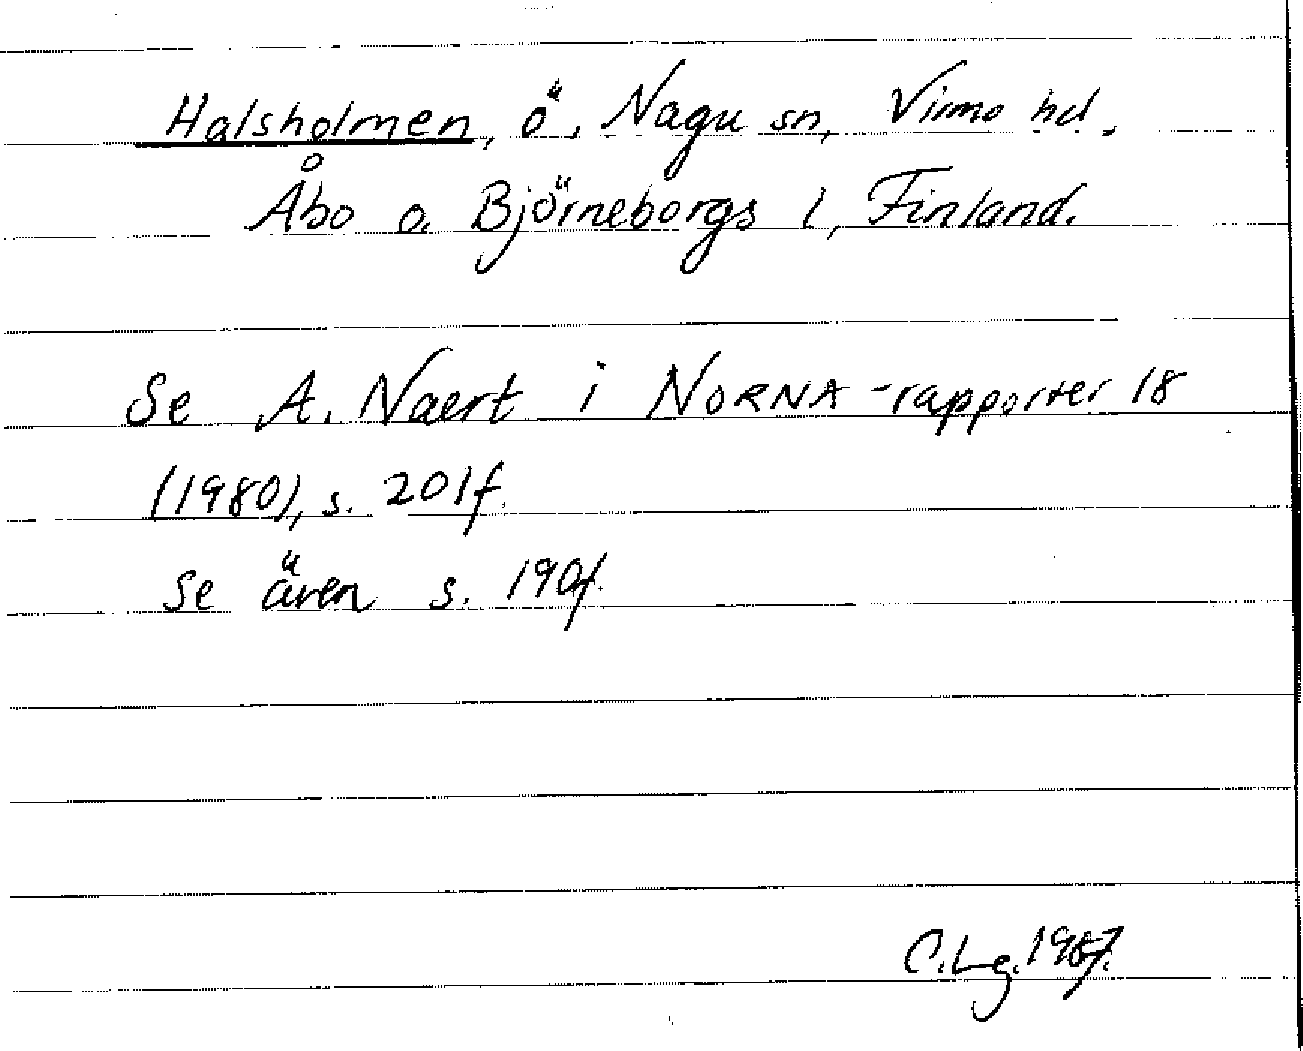 Halsholmen, ö, Nagu sn, Virmo hd.
Åbo o. Björneborgs l, Finland.
Se A. Naert i NORNA-rapporter 18
(1980), s. 201f.
Se även s. 190f.
C.Lg. 1987.